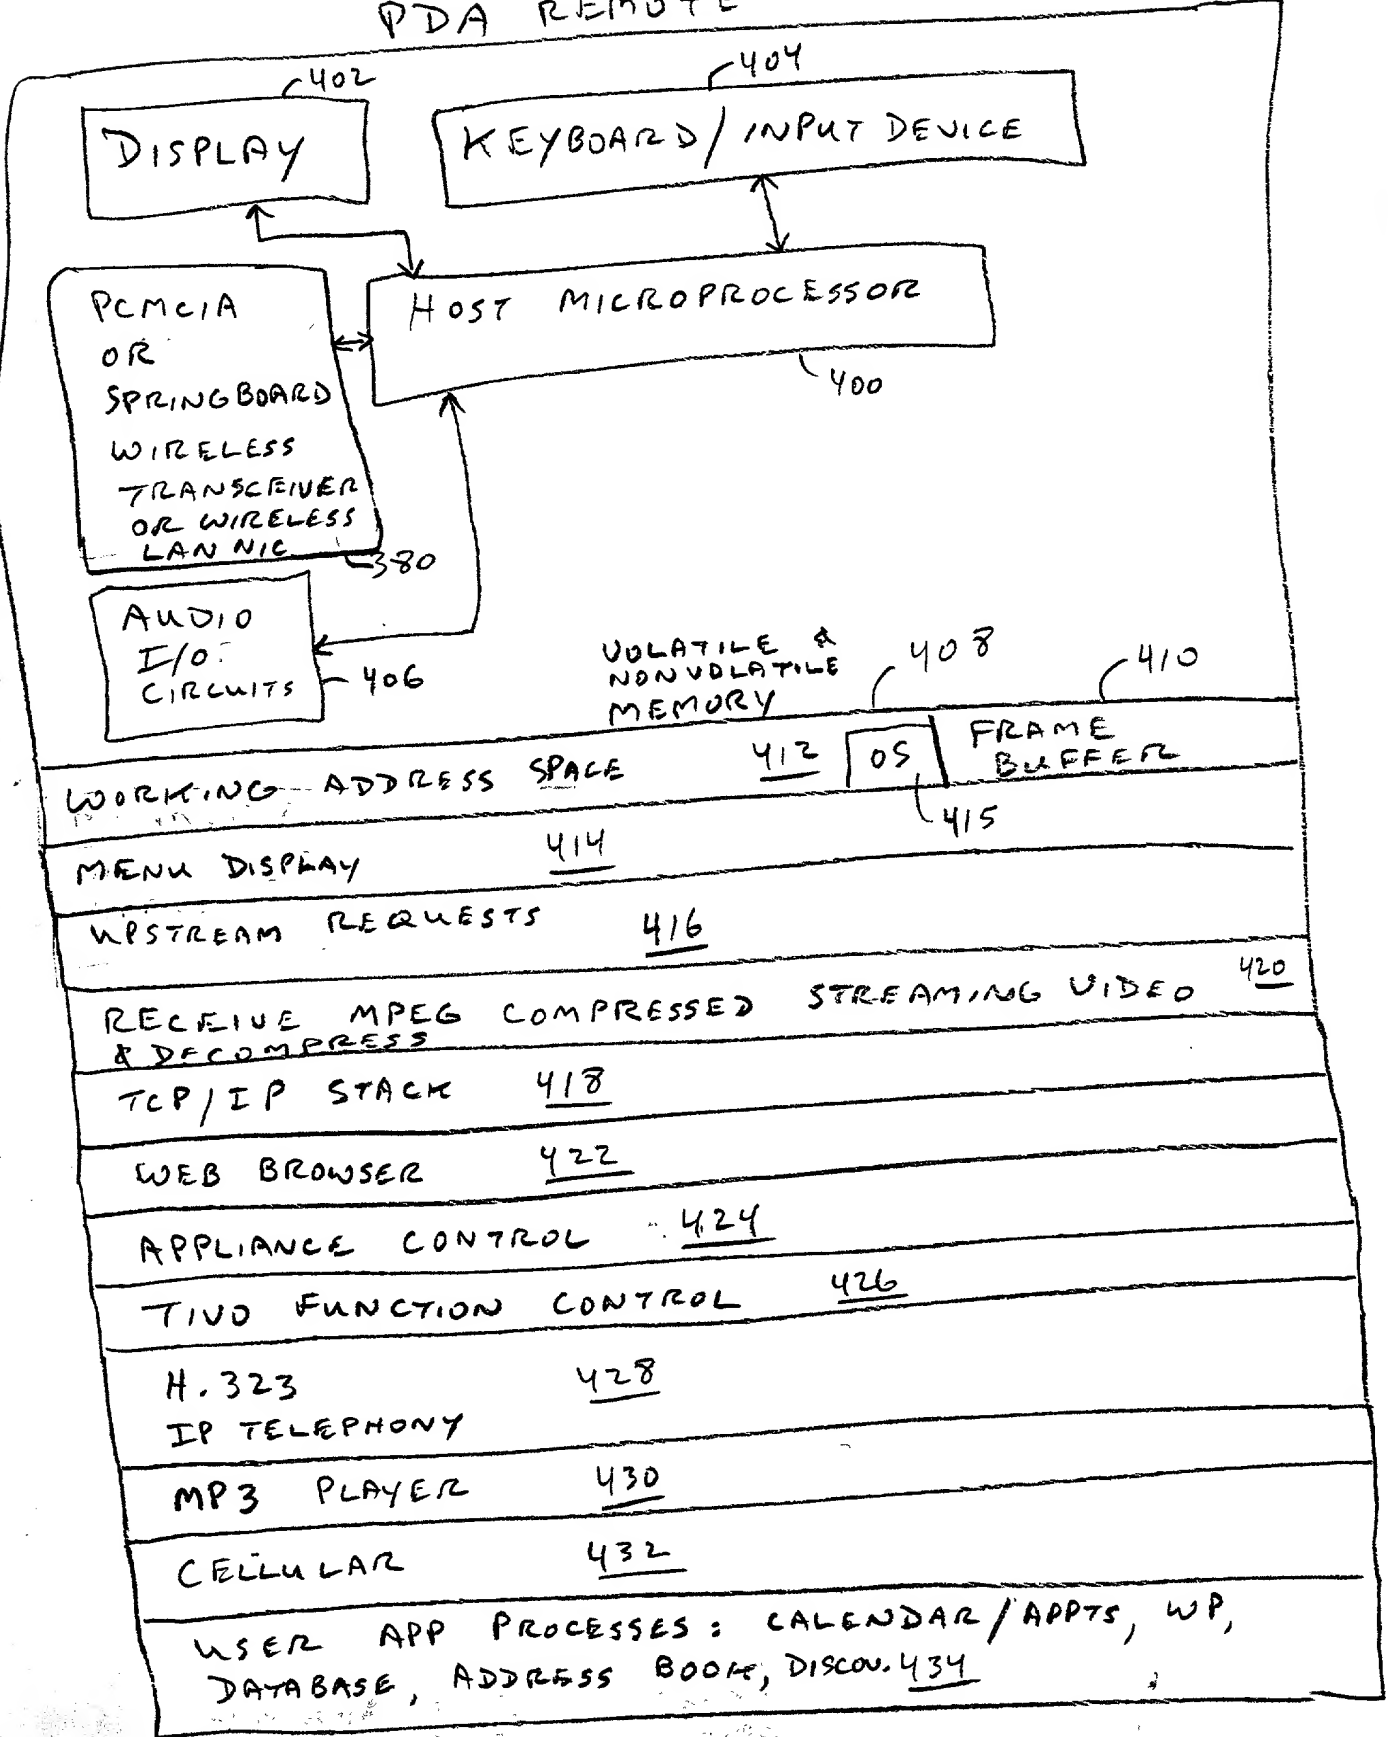 PDA REMOTE
402
404
DISPLAY
KEYBOARD/INPUT DEVICE
PCMCIA
OR
SPRINGBOARD
WIRELESS
TRANSCEIVER
OR WIRELESS
LAN NIC
380
HOST MICROPROCESSOR
400
AUDIO
I/O
CIRCUITS
406
VOLATILE &
NONVOLATILE
MEMORY
408
410
WORKING ADDRESS SPACE 412
OS
415
FRAME
BUFFER
MENU DISPLAY 414
UPSTREAM REQUESTS 416
RECEIVE MPEG COMPRESSED STREAMING VIDEO 420
& DECOMPRESS
TCP/IP STACK 418
WEB BROWSER 422
APPLIANCE CONTROL 424
TIVO FUNCTION CONTROL 426
H.323 428
IP TELEPHONY
MP3 PLAYER 430
CELLULAR 432
USER APP PROCESSES: CALENDAR/APPTS, WP,
DATABASE, ADDRESS BOOK, DISCOV. 434